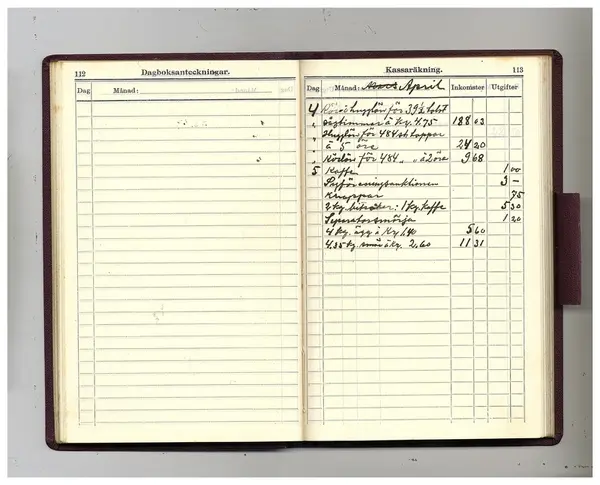 112
Dagboksanteckningar.
Dag Månad:
Kassaräkning. 113
Dag Månad: Mars April Inkomster Utgifter
4 Kör o hugglön för 39½ tolft
" sågtimmer à kr. 4.75 188 03
" Hugglön för 484 st kappar
" à 5 öre 24 20
" Körlön för 484 " " à 2 öre 9 68
5 Kaffe 1 00
3 –
Knappar 75
2 kg. bitsocker: 1 kg. kaffe 5 30
Seperatorsmörja 1 20
4 kg. ägg à kr. 1.40 5 60
4.35 kg. smör à kr. 2.60 11 31